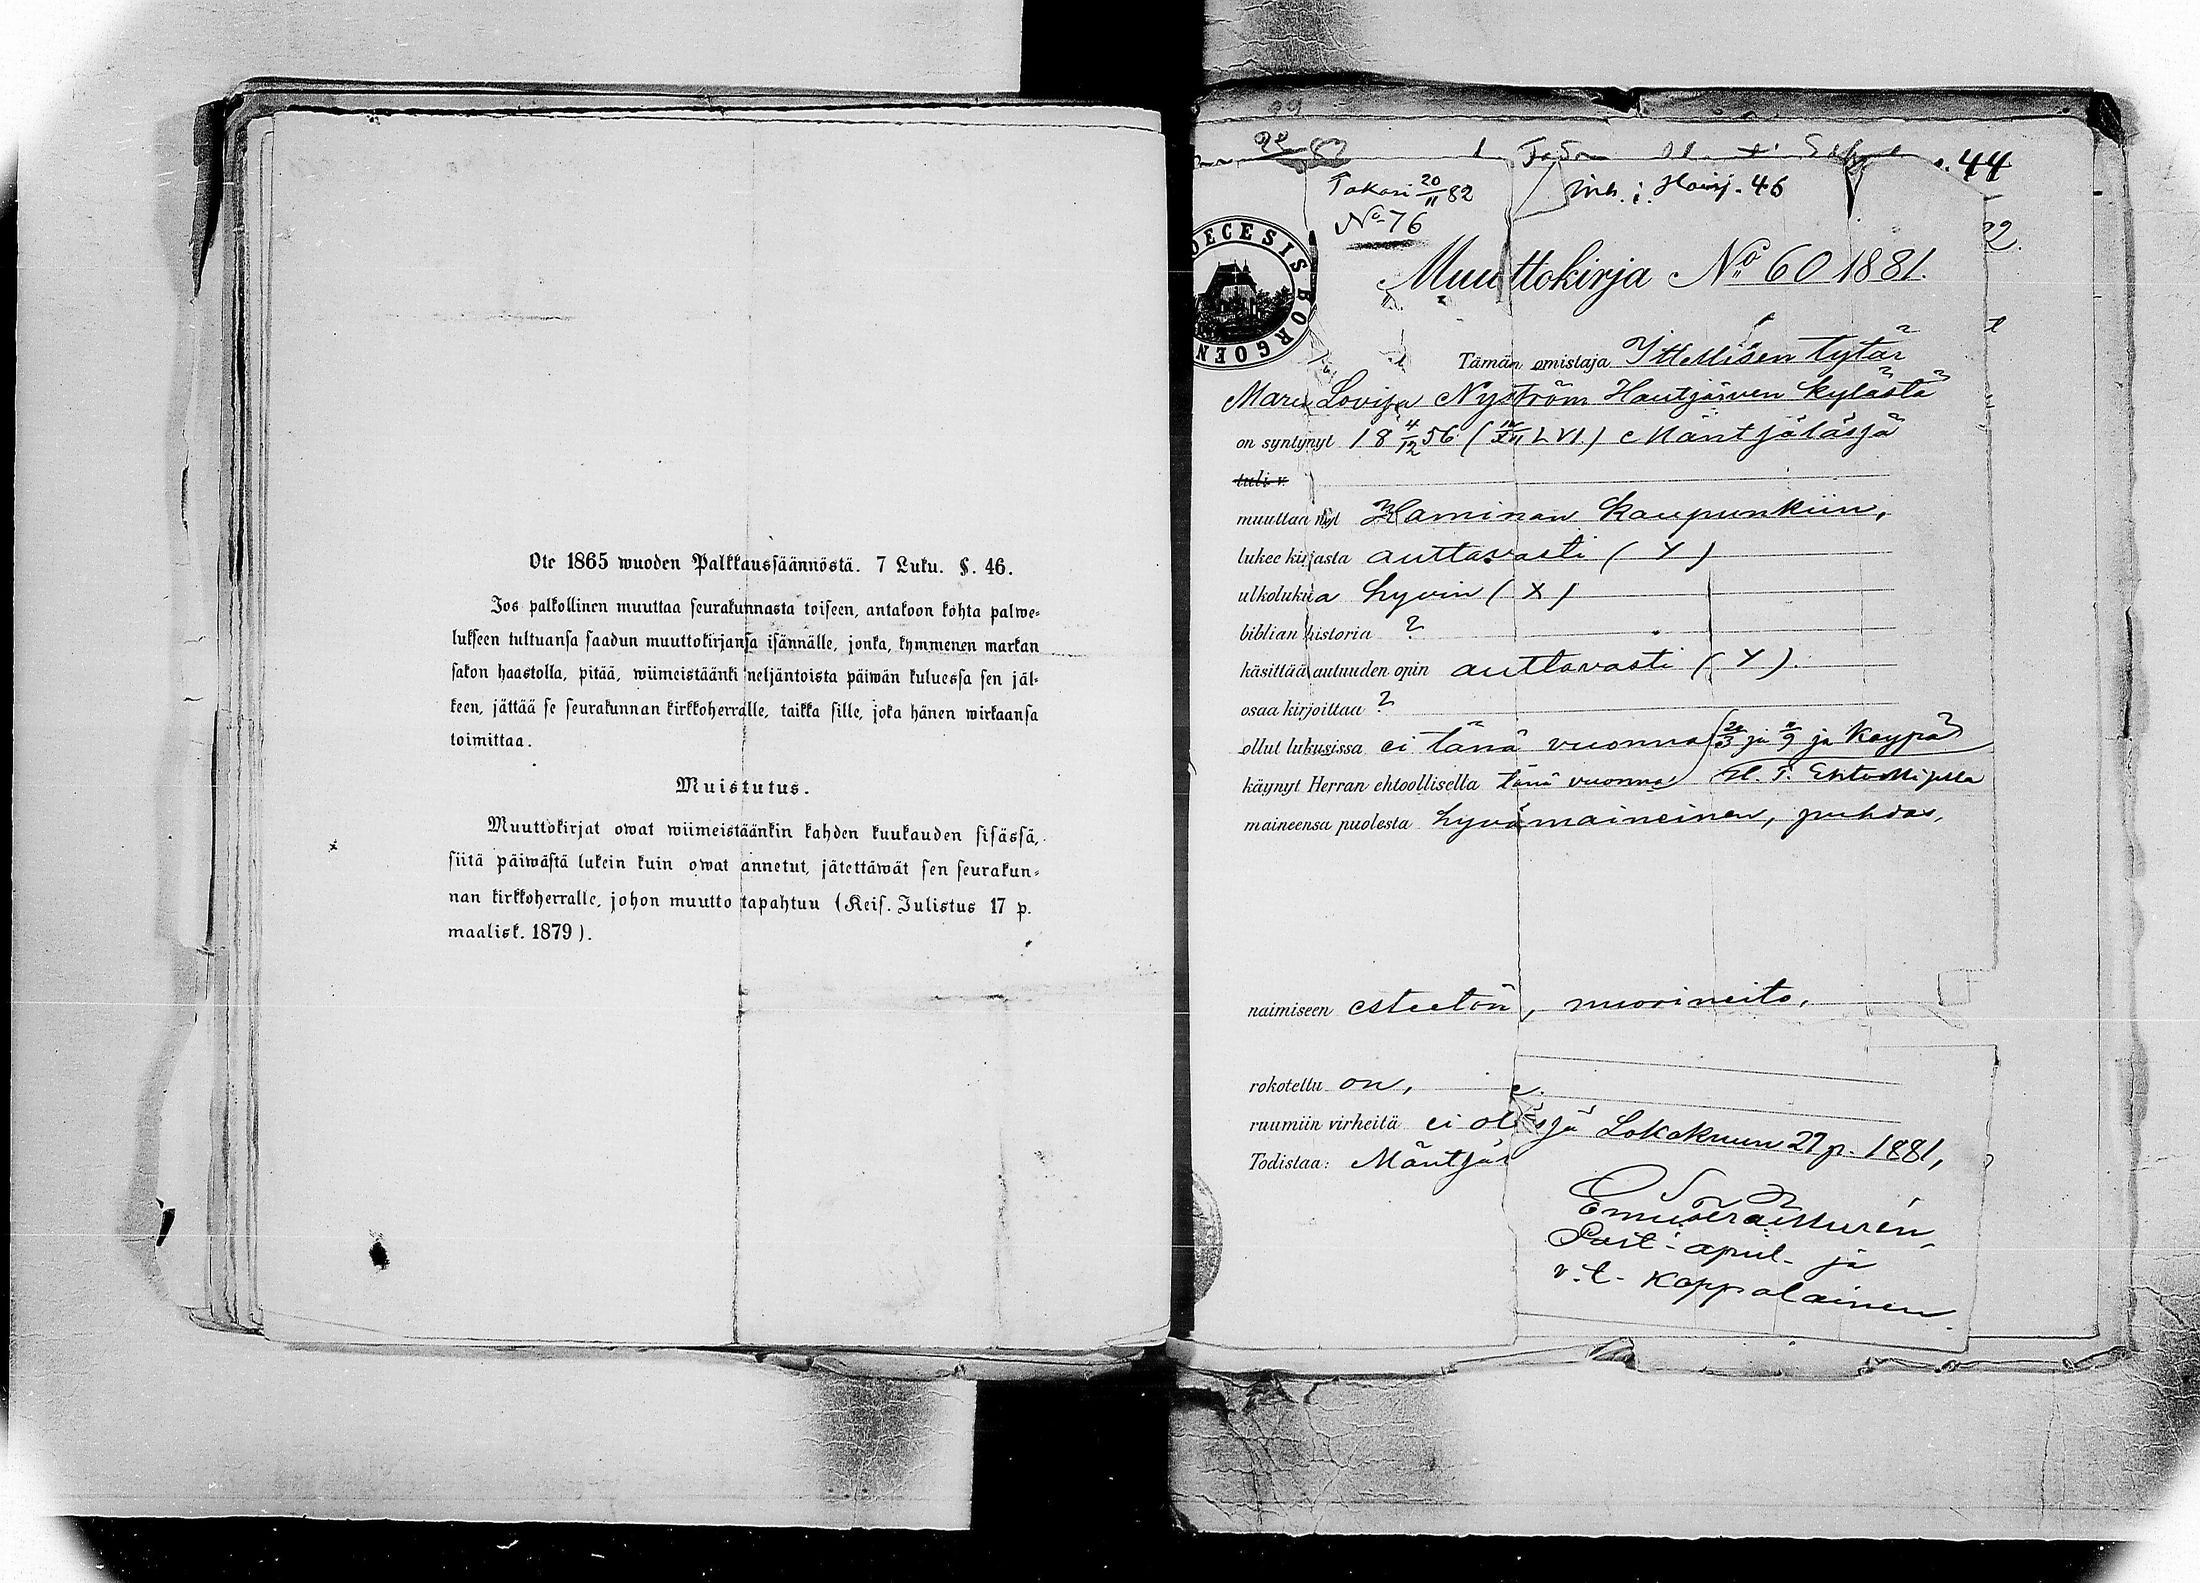 Ote 1865 wuoden Palkkaussäännöstä. 7 Luku. §. 46.
Jos palkollinen muuttaa seurakunnasta toiseen, antakoon kohta palwe-
lukseen tultuansa saadun muuttokirjansa isännälle, jonka, kymmenen markan
sakon haastolla, pitää, wiimeistäänki neljäntoista päiwän kuluessa sen jäl-
keen, jättää se seurakunnan kirkkoherralle, taikka sille, joka hänen wirkaansa
toimittaa.
Muistutus.
Muuttokirjat owat wiimeistäänkin kahden kuukauden sisässä,
siitä päiwästä lukein kuin owat annetut, jätettäwät sen seurakun-
nan kirkkoherralle, johon muutto tapahtuu (Keis. Julistus 17 p.
maalisk. 1879).
44
Takasi 20/11 82
No 76
46
DECESIS BORGOEN
Muuttokirja No 60 1881.
Tämän omistaja Ittellisen tytär
Maria Lovisa Nyström Hautjärven kylästä
on syntynyt 18 4/12 56 (IV/XII LVI.) Mäntjälässä
tuli v.
muuttaa nyt Haminan kaupunkiin,
lukee kirjasta auttavasti (Y)
ulkolukua hyvin (X)
biblian historia ?
käsittää autuuden opin auttavasti (Y).
osaa kirjoittaa ?
ollut lukusissa ei tänä vuonna (20/3 ja 11/9 ja käypä
käynyt Herran ehtoollisella tänä vuonna H. P. Ehtoollisella
maineensa puolesta hyvämaineinen, puhdas,
naimiseen esteetön, nuorineito,
rokotettu on,
ruumiin virheitä ei ol
Todistaa: Mäntjäl
ässä Lokakuun 27 p. 1881,
Past. apul. ja
v. t. kappalainen.